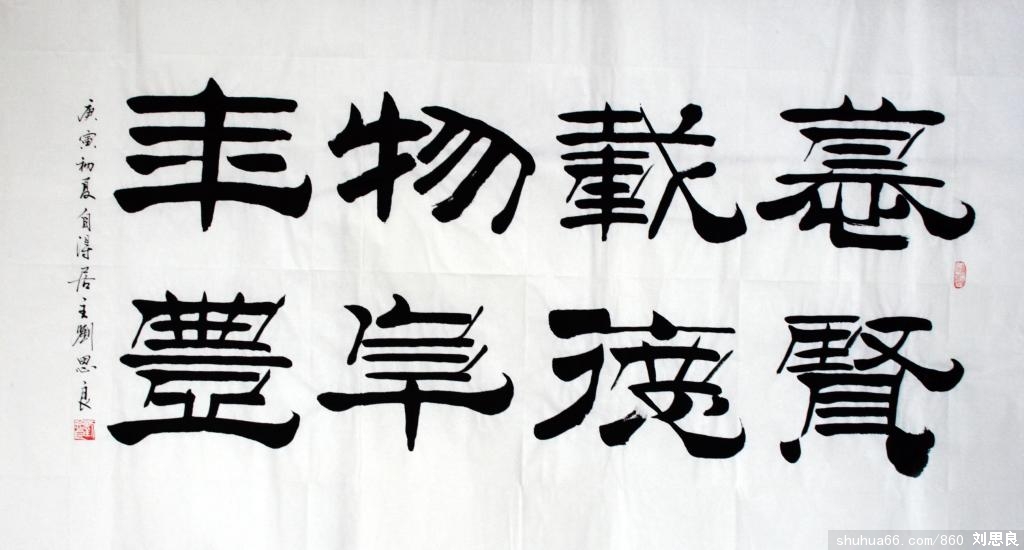 慕賢
載德
物阜
年豐
庚寅初夏自得居主劉思良
shuhua66.com/860 刘思良